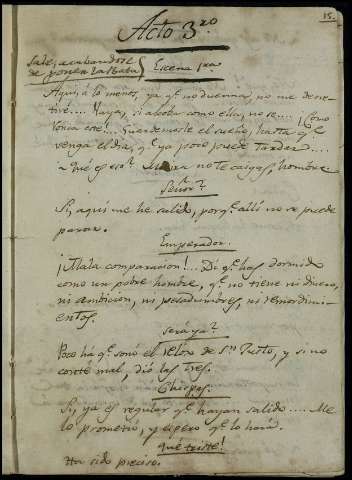 15.
Acto 3.ro
Sale, acabandose
de poner la Bata } Escena 1.ra
Aquí, á lo menos, ya q.e no duerma, no me derre-
tiré.... Vaya, si alcoba como ella, no se.... ¡Como
ronca ese!.... Guardemosle el sueño, hasta q.e
venga el dia, q.e ya poco puede tardar....
Qué es eso? Mira no te caigas, hombre
Señor?
Si, aqui me he salido, porq.e alli no se puede
parar.
Emperador.
¡Mala comparacion!... Dí q.e has dormido
como un pobre hombre, q.e no tiene ni dinero,
ni ambicion, ni pesadumbres, ni remordimi-
entos.
Será ya?
Poco há q.e sonó el relox de S.n Justo, y si no
conté mal, dió las tres.
Chispas.
Si, ya es regular q.e hayan salido.... Me
lo prometió, y espero q.e lo hará.
Qué triste!
Ha sido preciso.